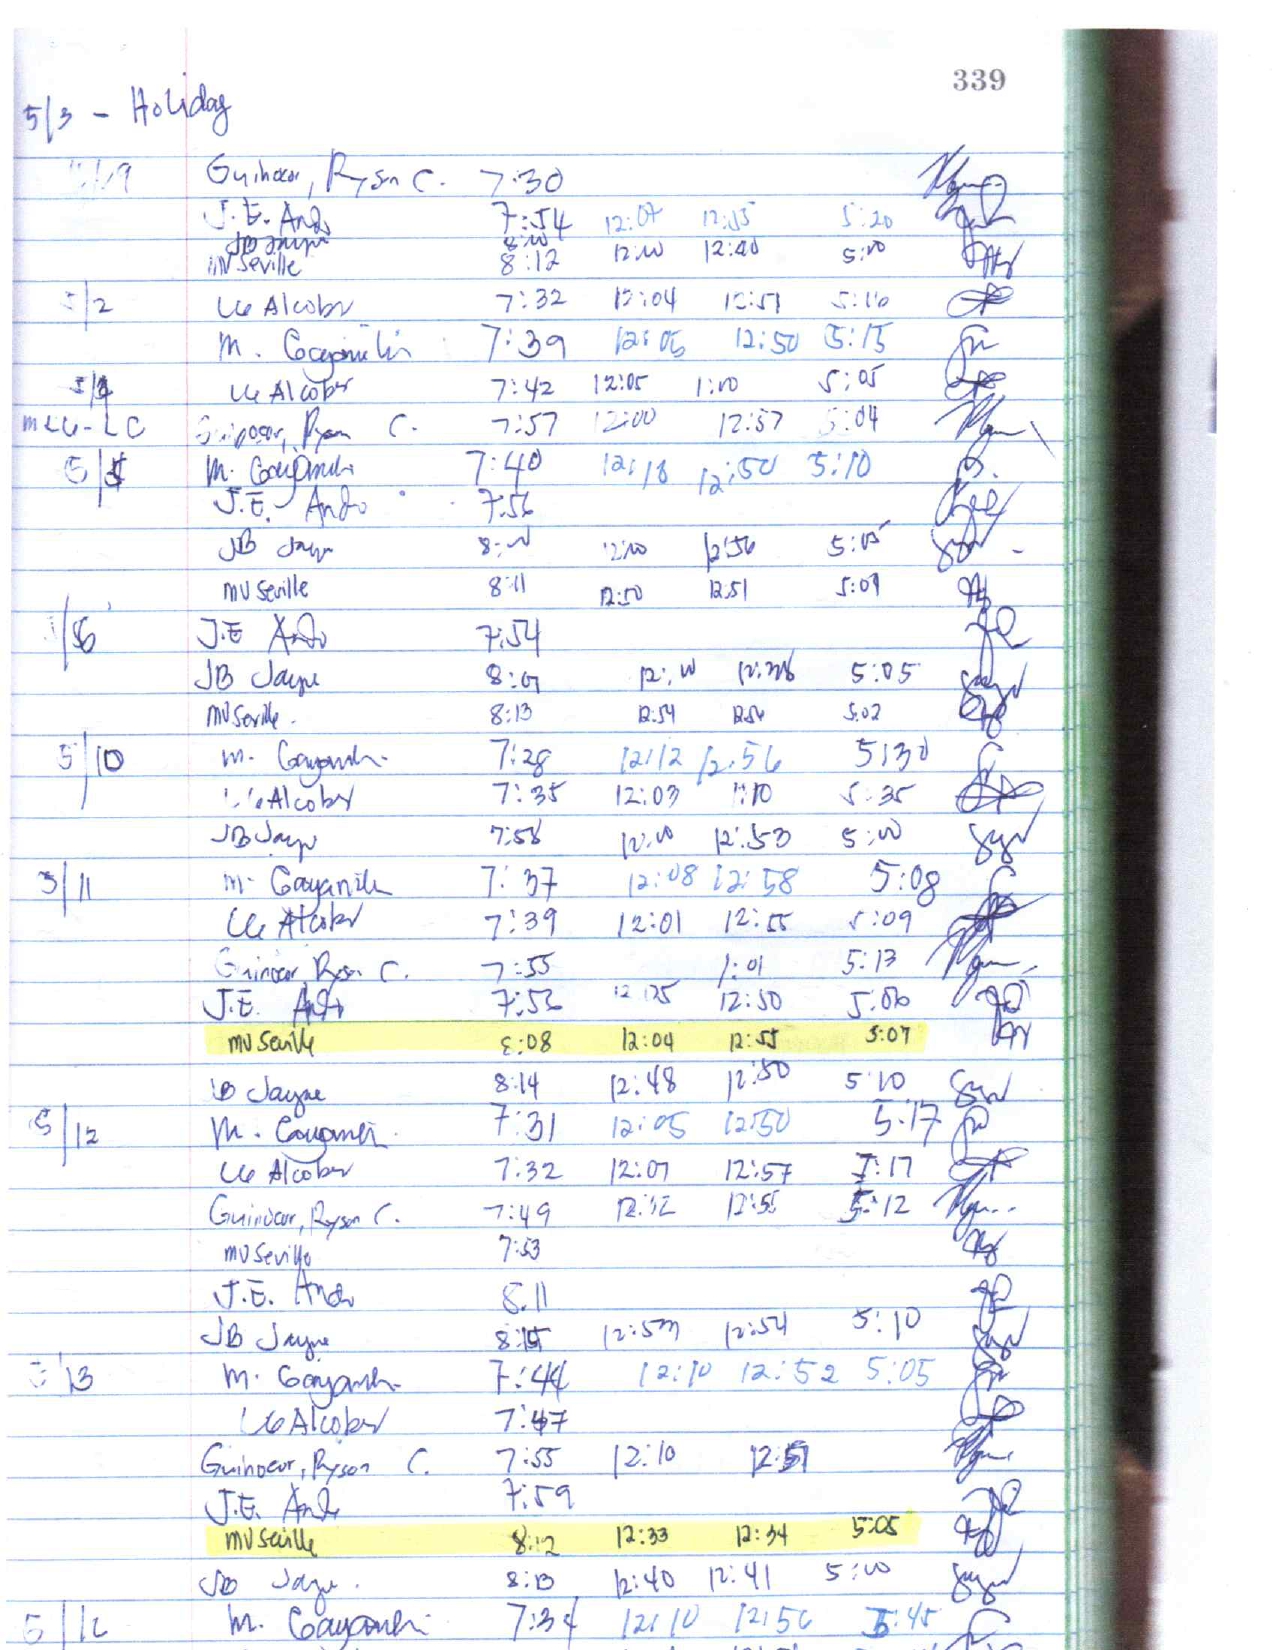 339
5/3 - Holiday
Guinocor, Ryson C. 7:30
J.E. Ando 7:54 12:07 5:20
JB Jayne 8:00
MV Seville 8:12 12:00 12:40 5:00
5/2 LG Alcober 7:32 12:04 12:51 5:16
M. Gayanilo 7:39 12:06 12:50 5:15
LG Alcober 7:42 12:05 1:00 5:05
Guinocor, Ryson C. 7:57 12:00 12:57 5:04
5/5 M. Gayanilo 7:40 12:18 12:50 5:10
J.E. Ando 7:56
JB Jayne 8:00 12:00 12:56 5:05
MV Seville 8:11 12:50 12:51 5:09
/6 J.E Ando 7:54
JB Jayne 8:09 12:00 5:05
MV Seville. 8:13 12:54 12:56 5:02
5/10 M. Gayanilo 7:28 12:12 12:56 5:30
LG Alcober 7:35 12:03 1:10 5:35
JB Jayne 7:58 12:00 12:53 5:00
5/11 M. Gayanilo 7:37 12:08 12:58 5:08
LG Alcober 7:39 12:01 12:55 5:09
Guinocor Ryson C. 7:55 1:01 5:13
J.E. Ando 7:56 12:50 5:06
MV Seville 8:08 12:04 12:55 5:07
JB Jayne 8:14 12:48 12:50 5:10
5/12 M. Gayanilo 7:31 12:05 12:50 5:17
LG Alcober 7:32 12:07 12:57 5:17
Guinocor, Ryson C. 7:49 12:12 12:55 5:12
MV Seville 7:53
J.E. Ando 8:11
JB Jayne 8:15 12:53 12:54 5:10
5/13 M. Gayanilo 7:44 12:10 12:52 5:05
LG Alcober 7:47
Guinocor, Ryson C. 7:55 12:10 12:51
J.E. Ando 7:59
MV Seville 8:12 12:33 12:34 5:05
JB Jayne. 8:13 12:40 12:41 5:00
M. Gayanilo 7:34 12:10 12:56 5:45